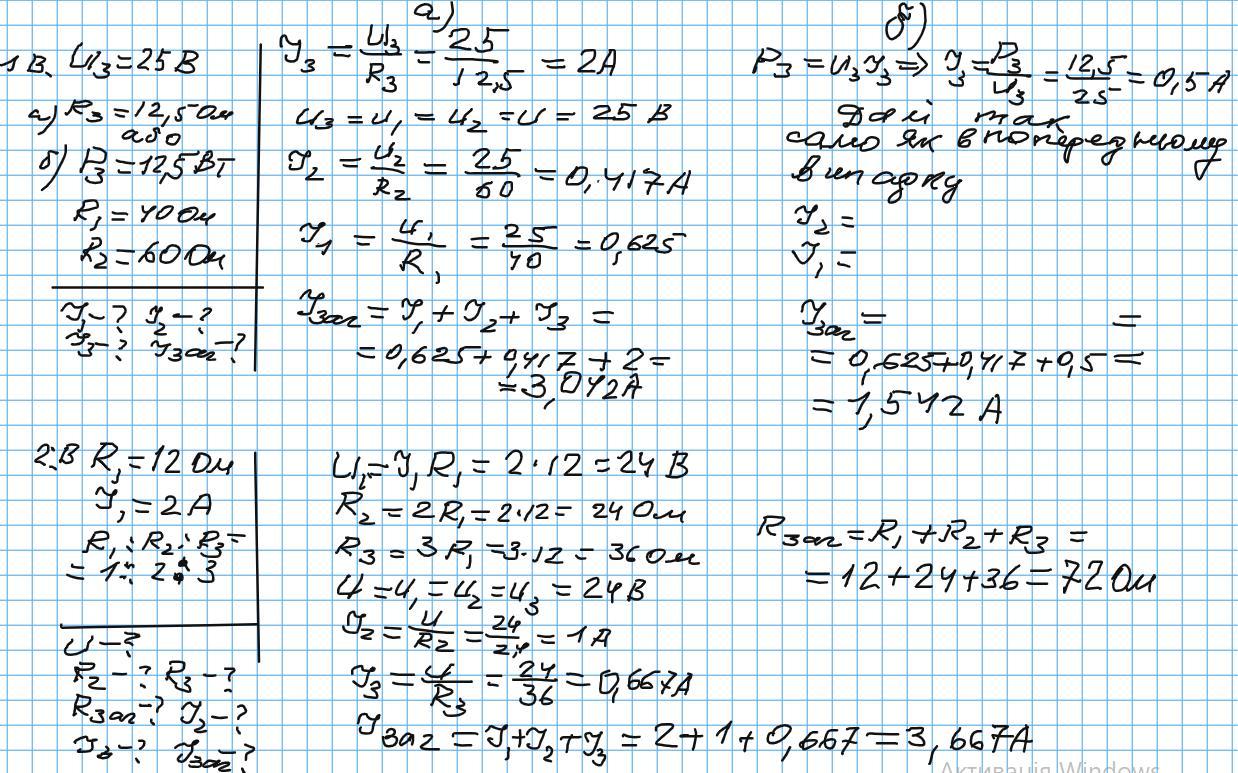 а)
б)
1 В. U₃ = 25 В
а) R₃ = 12,5 Ом
або
б) P₃ = 12,5 Вт
R₁ = 40 Ом
R₂ = 60 Ом
I₁ - ? I₂ - ?
I₃ - ? Iзаг - ?
I₃ = U₃/R₃ = 25/12,5 = 2А
U₃ = U₁ = U₂ = U = 25 В
I₂ = U₂/R₂ = 25/60 = 0,417 А
I₁ = U₁/R₁ = 25/40 = 0,625
Iзаг = I₁ + I₂ + I₃ =
= 0,625 + 0,417 + 2 =
= 3,042 А
P₃ = U₃I₃ => I₃ = P₃/U₃ = 12,5/25 = 0,5 А
Далі так
само як в попередньому
випадку
I₂ =
I₁ =
Iзаг = =
= 0,625 + 0,417 + 0,5 =
= 1,542 А
2:В R₁ = 12 Ом
I₁ = 2 А
R₁ : R₂ : R₃ =
= 1 : 2 : 3
U - ?
R₂ - ? R₃ - ?
Rзаг - ? I₂ - ?
I₃ - ? Iзаг - ?
U₁ = I₁R₁ = 2·12 = 24 В
R₂ = 2R₁ = 2·12 = 24 Ом
R₃ = 3R₁ = 3·12 = 36 Ом
U = U₁ = U₂ = U₃ = 24 В
I₂ = U/R₂ = 24/24 = 1 А
I₃ = U/R₃ = 24/36 = 0,667 А
Iзаг = I₁ + I₂ + I₃ = 2 + 1 + 0,667 = 3,667 А
Rзаг = R₁ + R₂ + R₃ =
= 12 + 24 + 36 = 72 Ом
Активація Windows